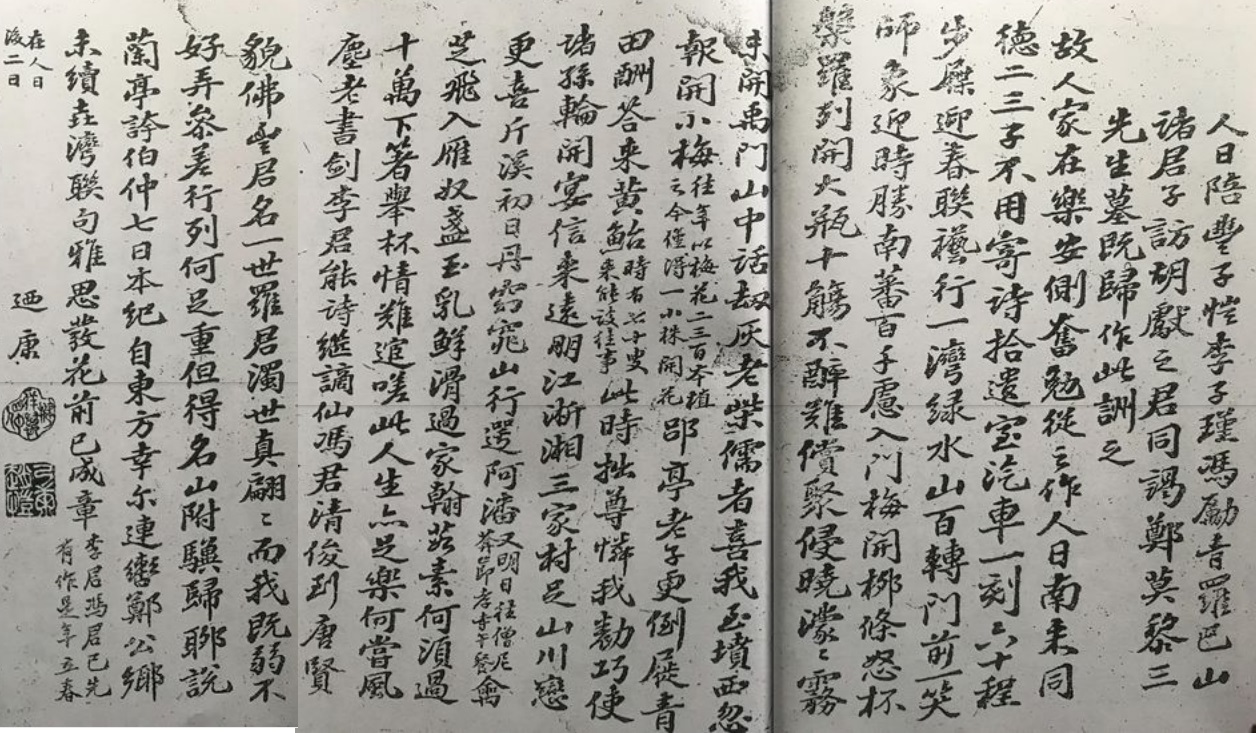 人日陪豐子愷李子瑾馮勵青羅邑山
諸君子訪胡獻之君同謁鄭莫黎三
先生墓既歸作此詶之
故人家在樂安側奮勉從之作人日南來同
德二三子不用寄詩拾遺宝汽車一刻六十程
步屧迎春聯襼行一灣绿水山百轉門前一笑
師象迎時勝南蕃百子慮入門梅開栁條怒杯
槃羅列開大瓶十觴不醉難償聚侵曉濛〻霧
未開禹門山中話劫灰老柴儒者喜我至墳西忽
報開小梅往年以梅花二三百本植
之今僅得一小株開花郘亭老子更倒屣青
田酬荅来黄鮐時有七十叟
来能談往事此時拙尊憐我勸巧使
诸孫輪開宴信来遠明江淅湘三家村足山川戀
更喜斤溪初日丹霠窕山行選阿潘又明日往僧尼
孝寺午餐禽
芝飛入雁奴盞玉乳鮮滑過家翰蔬素何湏過
十萬下箸舉杯情難逭嗟此人生亦足樂何當風
塵老書劍李君能詩继謫仙馮君清俊到唐賢
貌佛豊君名一世羅君濁世真翩〻而我既弱不
好弄叅差行列何足重但得名山附驥歸聊説
蘭亭誇伯仲七日本紀自東方幸尔連鑣鄭公鄉
未續垚灣聯句雅思發花前已成章李君馮君已先
有作是年立春
在人日
後二日
迺康